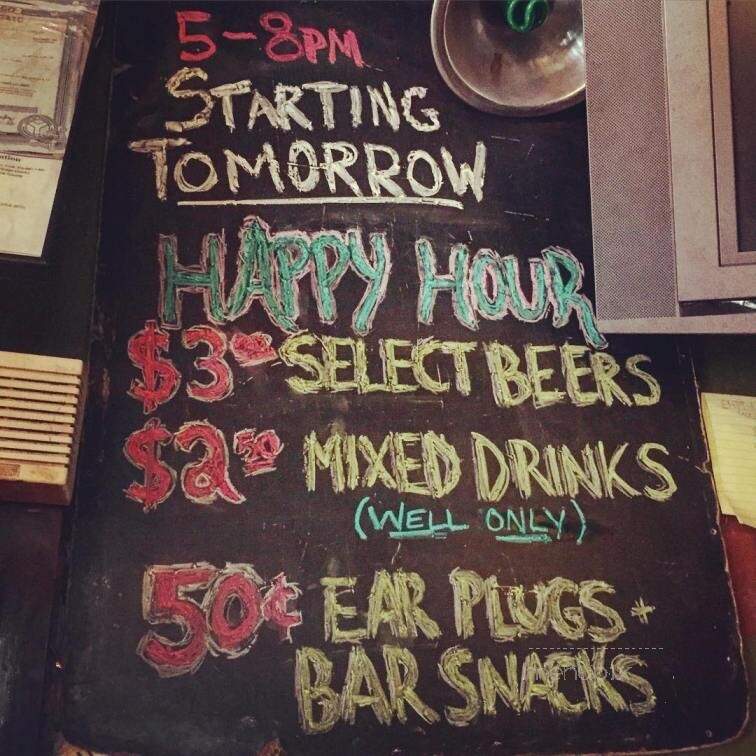 5-8PM
STARTING
TOMORROW
HAPPY HOUR
$3.00 SELECT BEERS
$2.50 MIXED DRINKS
(WELL ONLY)
50¢ EAR PLUGS +
BAR SNACKS